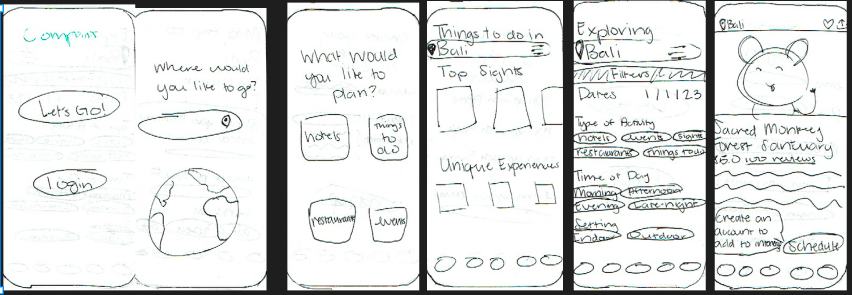 Compoint
Let's Go!
Login
Where would
you like to go?
What would
you like to
plan?
hotels
Things
to
do
restaurant
events
Things to do in
Bali
Top Sights
Unique Experiences
Exploring
Bali
Filters
Dates 1/1/23
Type of Activity
hotels events sights
restaurants things todo
Time of Day
Morning Afternoon
Evening Late-night
Setting
Indoor Outdoor
Bali
Sacred Monkey
Forest Santuary
5.0 100 reviews
Create an
account to
add to
Schedule